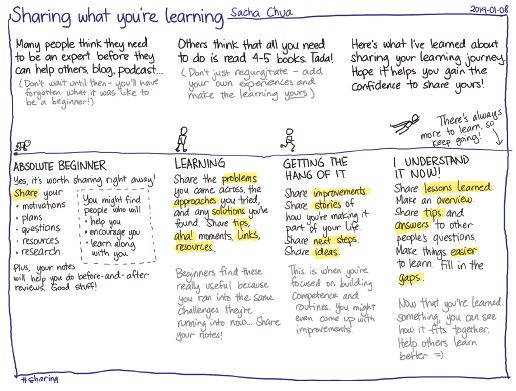 Sharing what you're learning Sacha Chua 2014-01-08
Many people think they need
to be an expert before they
can help others, blog, podcast...
(Don't wait until then - you'll have
forgotten what it was like to
be a beginner!)
Others think that all you need
to do is read 4-5 books. Tada!
(Don't just regurgitate - add
your own experiences and
make the learning yours)
Here's what I've learned about
sharing your learning journey.
Hope it helps you gain the
confidence to share yours!
There's always
more to learn, so
keep going!
ABSOLUTE BEGINNER
Yes, it's worth sharing right away!
Share your
• motivations
• plans
• questions
• resources
• research
You might find
people who will
• help you
• encourage you
• learn along
with you
Plus, your notes
will help you do before-and-after
reviews. Good stuff!
LEARNING
Share the problems
you came across, the
approaches you tried,
and any solutions you've
found. Share tips,
aha! moments, links,
resources.
Beginners find these
really useful because
you ran into the same
challenges they're
running into now... Share
your notes!
GETTING THE
HANG OF IT
Share improvements.
Share stories of
how you're making it
part of your life.
Share next steps.
Share ideas.
This is when you're
focused on building
competence and
routines. You might
even come up with
improvements.
I UNDERSTAND
IT NOW!
Share lessons learned.
Make an overview.
Share tips and
answers to other
people's questions.
Make things easier
to learn. Fill in the
gaps.
Now that you've learned
something, you can see
how it fits together.
Help others learn
better =)
#sharing